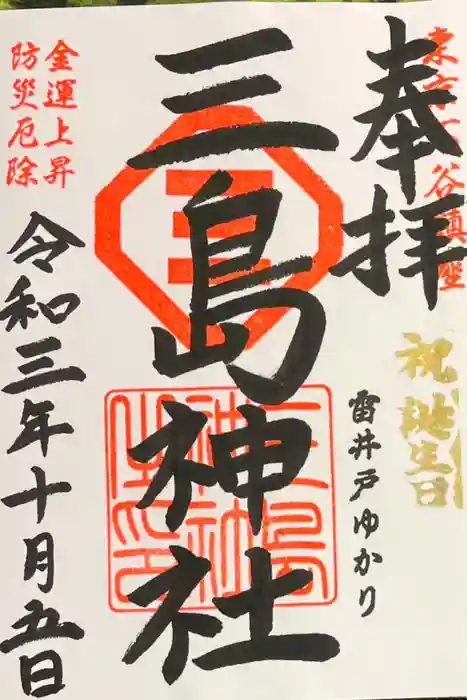 奉拝
東京下谷鎮座
祝誕生日
三島神社
三
三島神社之印
雷井戸ゆかり
金運上昇
防災厄除
令和三年十月五日